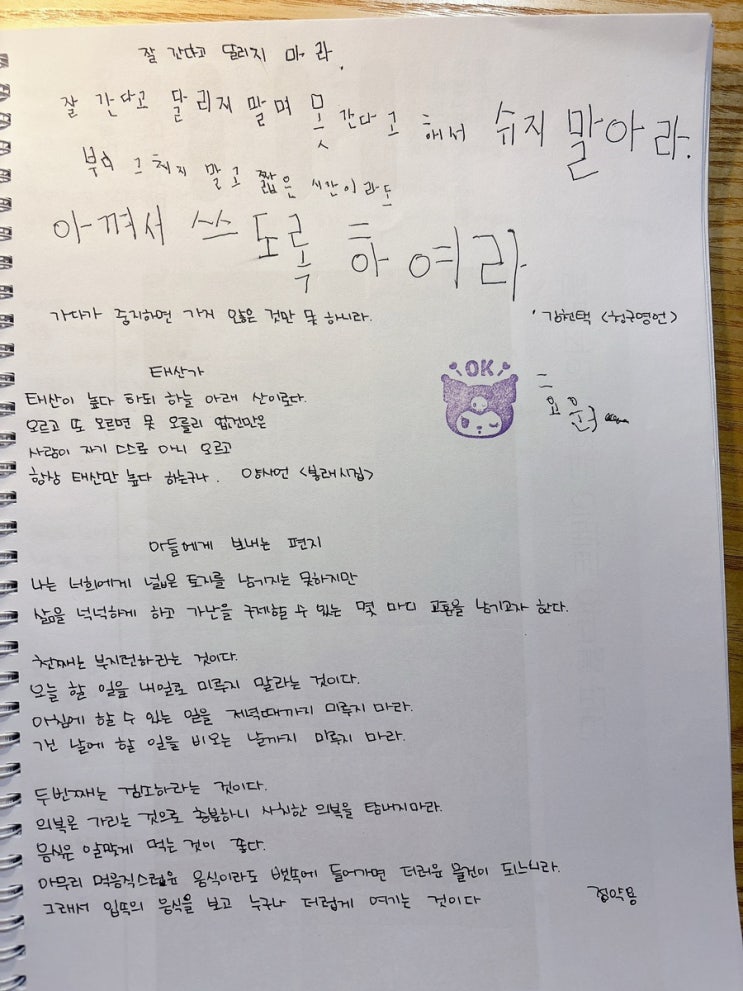 잘 간다고 달리지 마라.
잘 간다고 달리지 말며 못 간다고 해서 쉬지 말아라.
부디 그치지 말고 짧은 시간이라도
아껴서 쓰도록 하여라
가다가 중지하면 가지 않은 것만 못 하니라.
김천택 <청구영언>
태산가
OK
태산이 높다 하되 하늘 아래 산이로다.
오르고 또 오르면 못 오를리 없건만은
사람이 자기 스스로 아니 오르고
항상 태산만 높다 하는구나. 양사언 <봉래시집>
아들에게 보내는 편지
나는 너희에게 넓은 토지를 남기지는 못하지만
삶을 넉넉하게 하고 가난을 구제할 수 있는 몇 마디 교훈을 남기고자 한다.
첫째는 부지런하라는 것이다.
오늘 할 일을 내일로 미루지 말라는 것이다.
아침에 할 수 있는 일을 저녁때까지 미루지 마라.
갠 날에 할 일을 비오는 날까지 미루지 마라.
두번째는 검소하라는 것이다.
의복은 가리는 것으로 충분하니 사치한 의복을 탐내지마라.
음식은 알맞게 먹는 것이 좋다.
아무리 먹음직스러운 음식이라도 뱃속에 들어가면 더러운 물건이 되느니라.
그래서 입속의 음식을 보고 누구나 더럽게 여기는 것이다
정약용